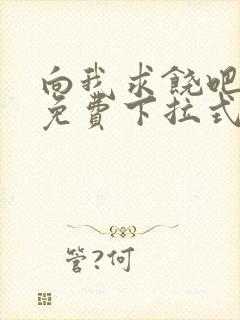 向我求饶吧
免費下拉式
管?何